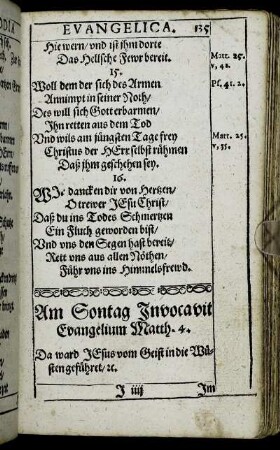 EVANGELICA. 135
Hie wern/ vnd ist ihm dorte
Das Hellsche Fewr bereit.
Matt. 25.
v, 42.
15.
Woll dem der sich des Armen
Annimpt in seiner Noth/
Des will sich Gott erbarmen/
Ihn retten aus dem Tod
Vnd wils am jüngsten Tage frey
Christus der HErr selbst rühmen
Daß ihm geschehen sey.
Ps. 41. 2.
Matt. 25.
v, 35.
16.
WIr dancken dir von Hertzen/
O trewer JEsu Christ/
Daß du ins Todes Schmertzen
Ein Fluch geworden bist/
Vnd vns den Segen hast bereit/
Rett vns aus allen Nöthen/
Führ vns ins Himmelsfrewd.
Am Sontag Invocavit
Evangelium Matth. 4.
Da ward JEsus vom Geist in die Wü-
sten geführet/ ꝛc.
I iiij
Im